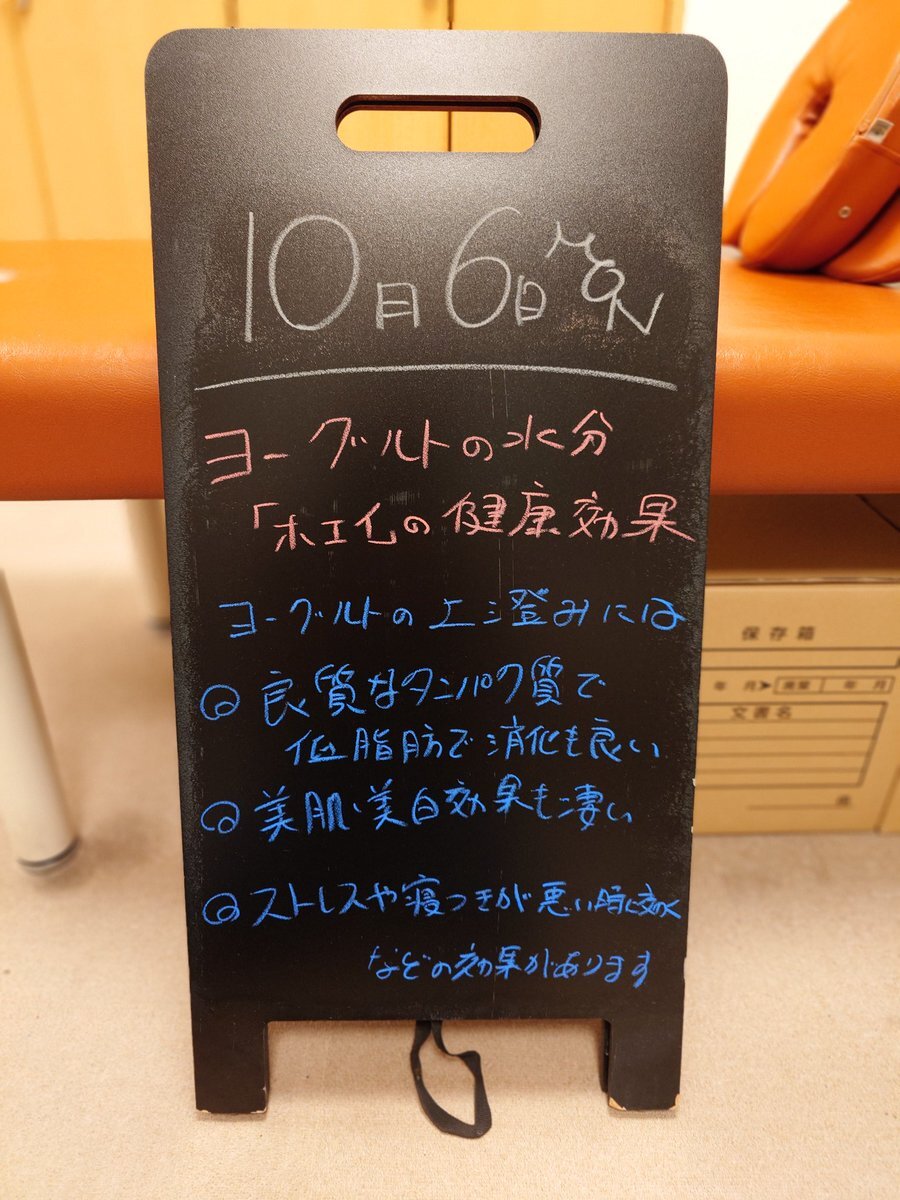 10月6日 MON
ヨーグルトの水分
「ホエイの健康効果
ヨーグルトの上澄みには
◎良質なタンパク質で
低脂肪で消化も良い
◎美肌・美白効果も凄い
◎ストレスや寝つきが悪い時に効く
などの効果があります
保存箱
年 月➤ 廃棄 年 月
文書名